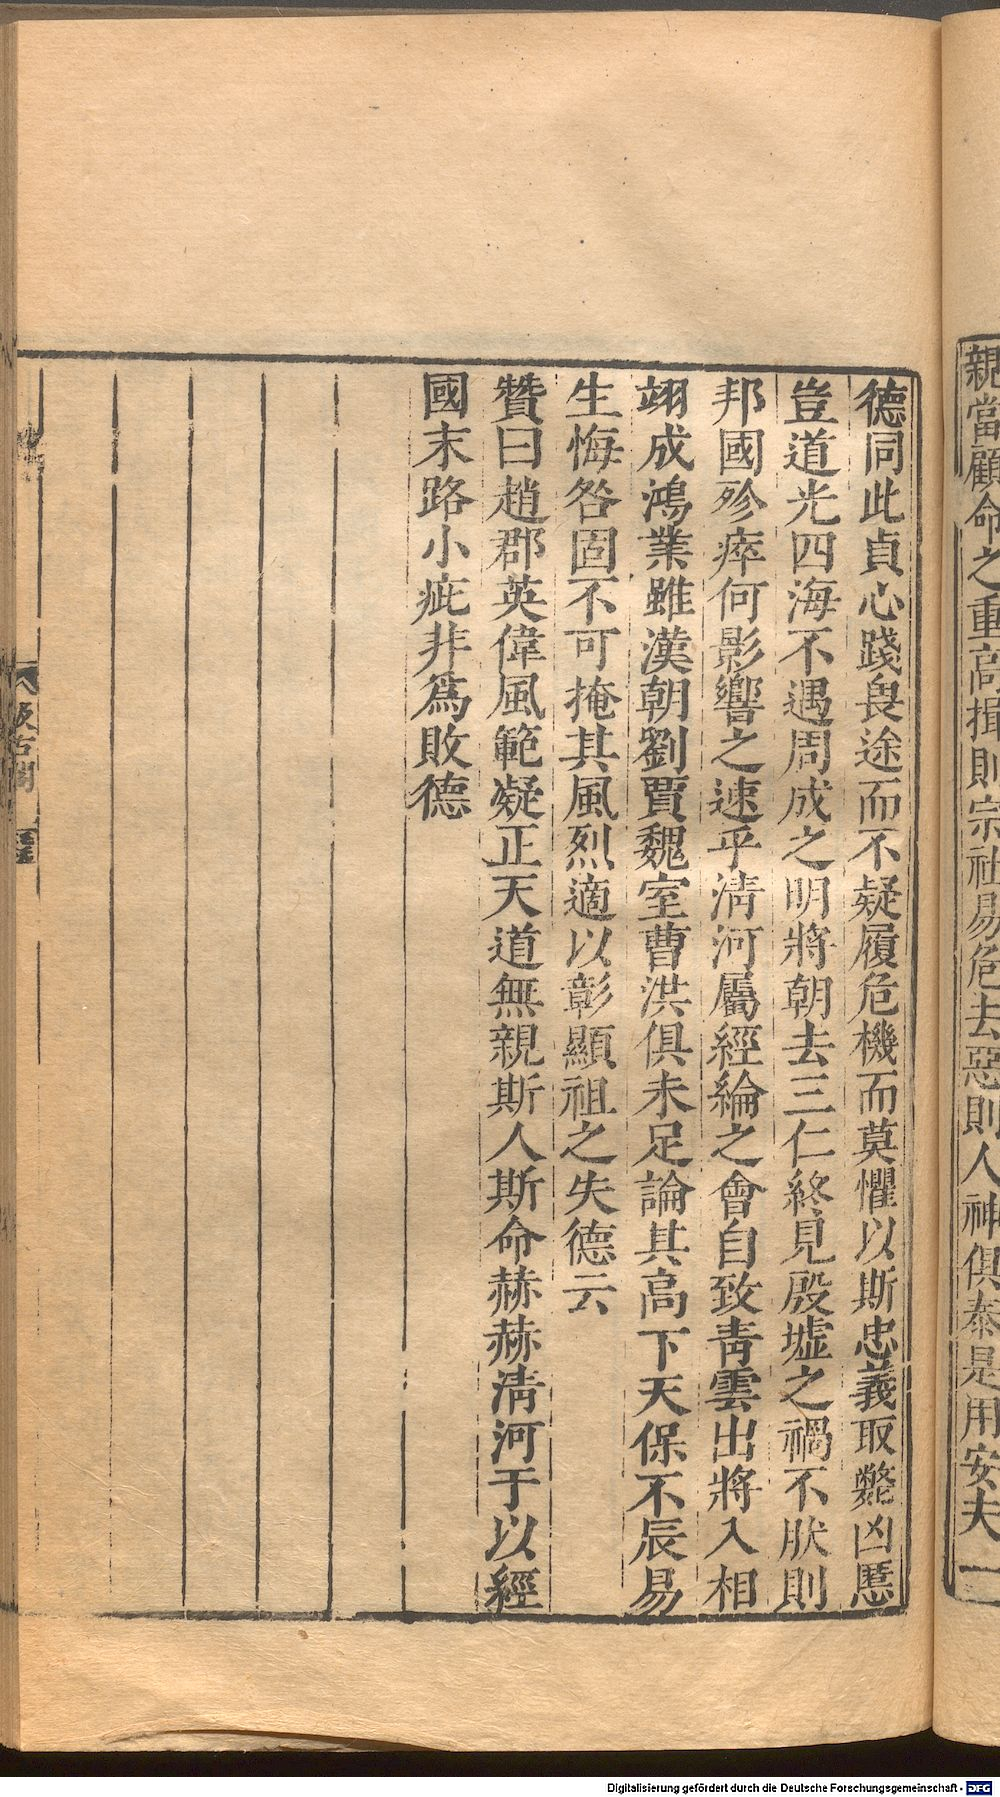 親當顧命之重高揖則宗社易危去惡則人神俱泰是用安夫一
德同此貞心踐畏途而不疑履危機而莫懼以斯忠義取斃凶慝
豈道光四海不遇周成之明將朝去三仁終見殷墟之禍不肰則
邦國殄瘁何影響之速乎淸河屬經綸之會自致靑雲出將入相
翊成鴻業雖漢朝劉賈魏室曹洪俱未足論其高下天保不辰易
生悔咎固不可掩其風烈適以彰顯祖之失德云
贊曰趙郡英偉風範凝正天道無親斯人斯命赫赫淸河于以經
國末路小疵非爲敗德
汲古閣
Digitalisierung gefördert durch die Deutsche Forschungsgemeinschaft - DFG